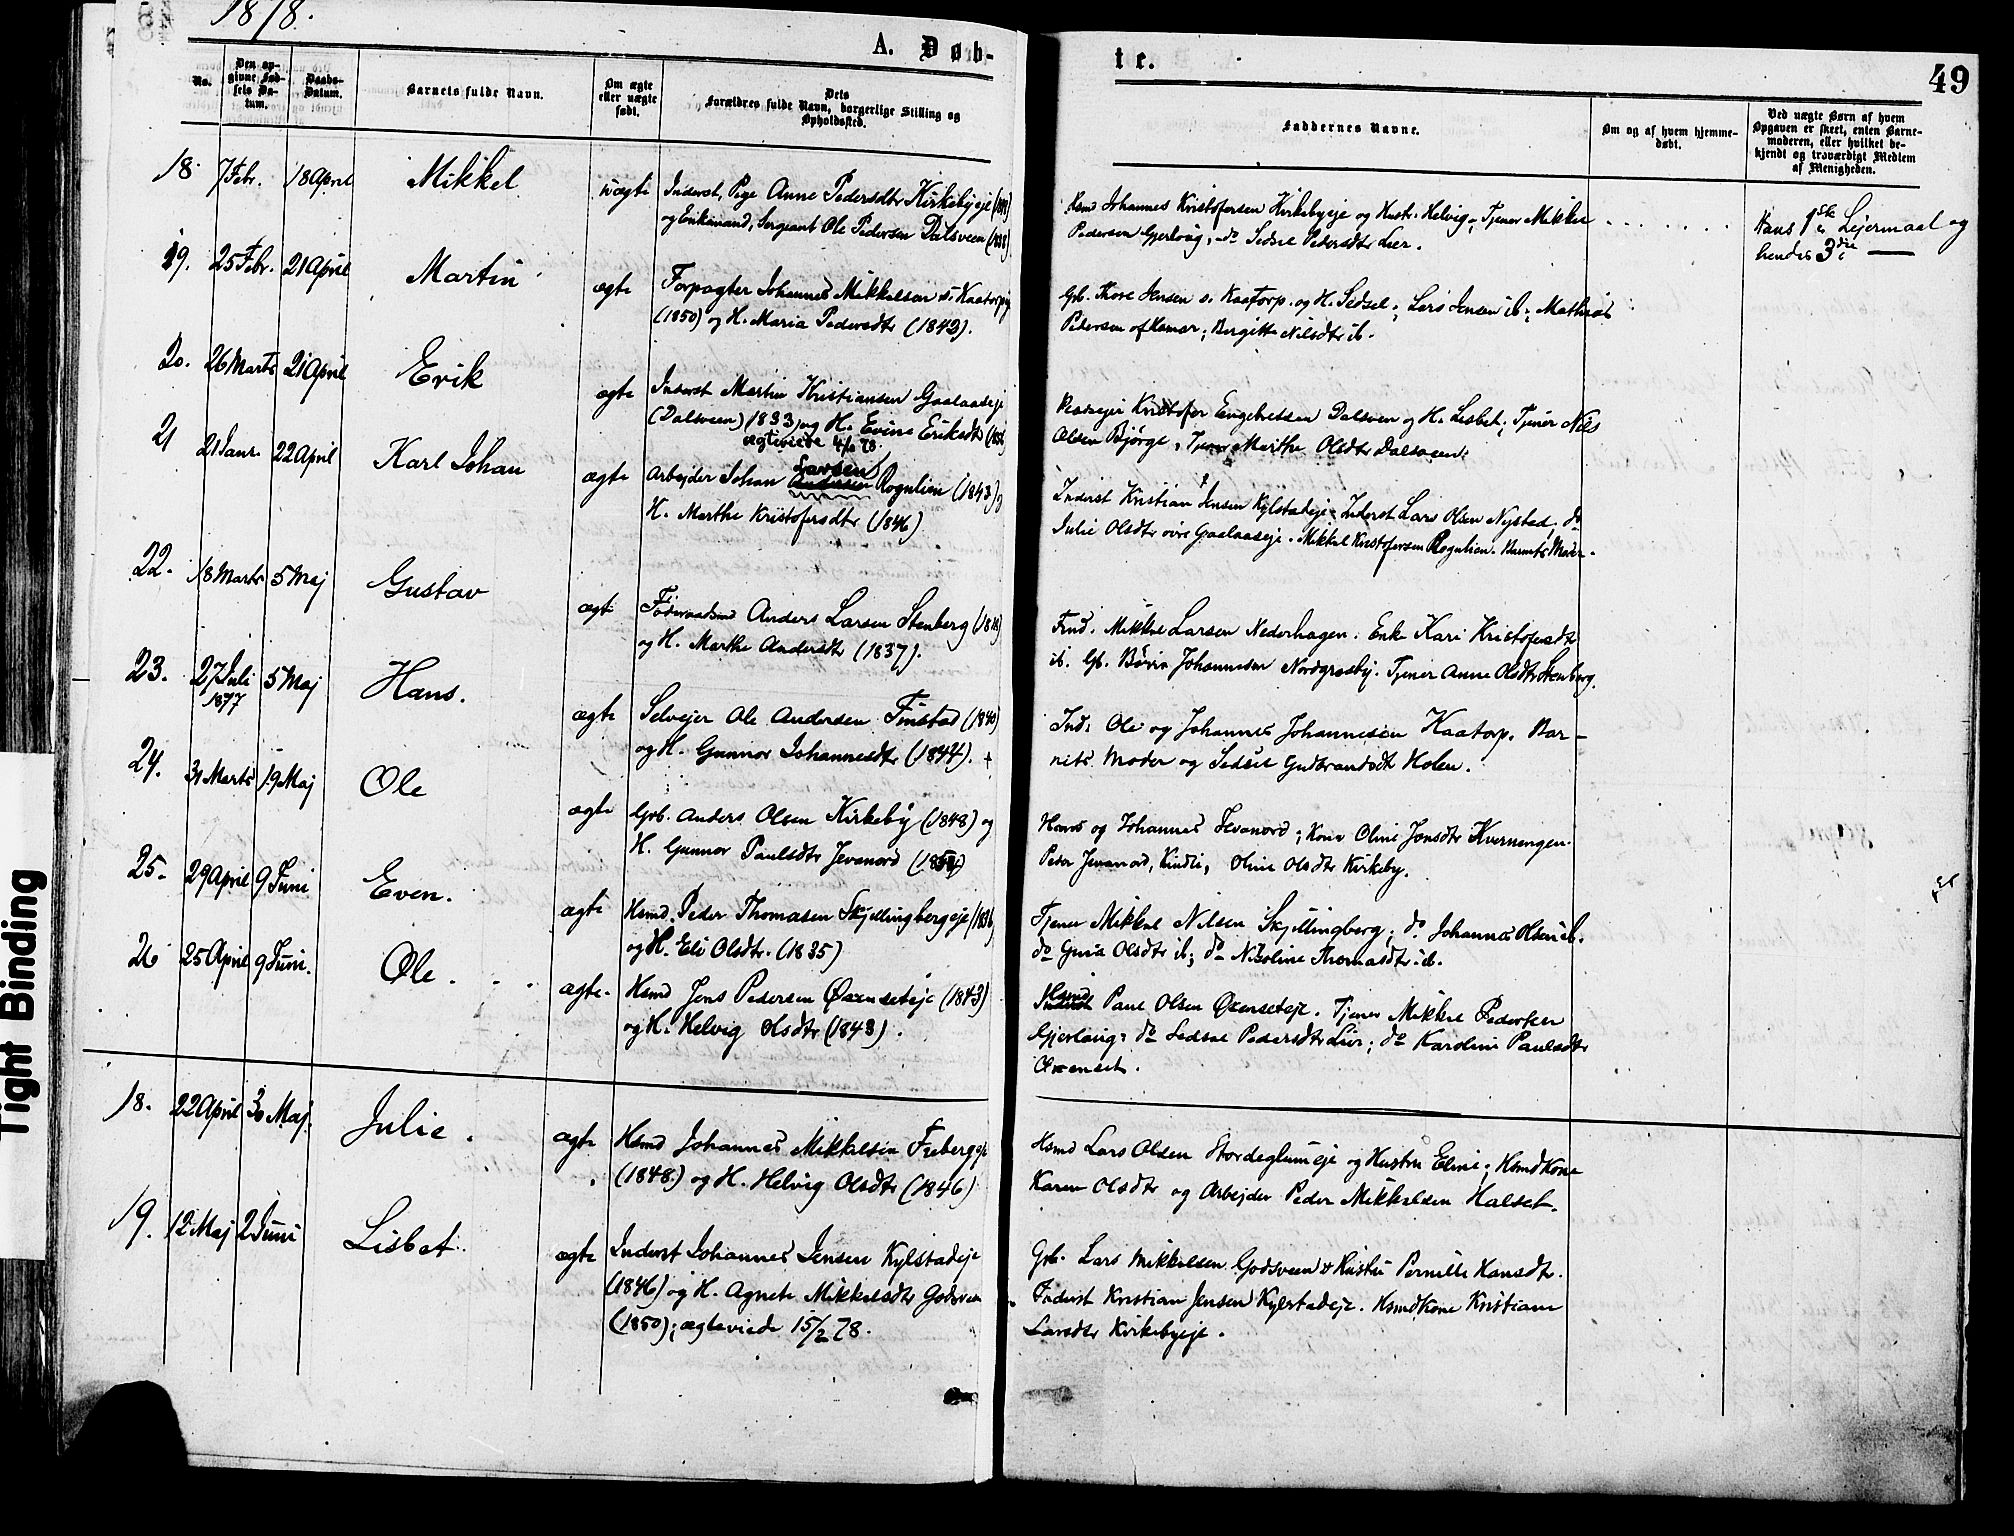 1878.
A. Døb-
te.
49
No.
Den op-
givne Fød-
sels Da-
tum.
Daabs-
Datum.
Barnets fulde Navn.
Om ægte
eller uægte
født.
Dets
Forældres fulde Navn, borgerlige Stilling og
Opholdssted.
Faddernes Navne.
Om og af hvem hjemme-
døbt.
Ved uægte Børn af hvem
Opgaven er skeet, enten Barne-
moderen, eller hvilket be-
kjendt og troværdigt Medlem
af Menigheden.
18. 7 Febr. 18 April Mikkel uægte Inderst, Pige Anne Pedersdtr Kirkebyeje
og Enkemand, Sergeant Ole Pedersen Dalsveen
Hsmd Johannes Kristofersen Kirkebyeje og Hustr. Helvig; Tjener Mikkel
Pedersen Gjerlaug, do Sedsel Pedersdtr Lier.
Hans 1ste Lejermaal og
hendes 3die —
19. 25 Febr. 21 April Martin ægte Forpagter Johannes Mikkelsen s. Kaatorp
(1850) og H. Maria Pedersdtr (1843).
Gb. Thore Jensen s. Kaatorp. og H. Sedsel; Lars Jensen ib; Mathias
Pedersen af Hamar; Birgitte Nilsdtr ib.
20. 26 Marts 21 April Erik ægte Inderst Martin Kristiansen Gaalaaseje
(Dalsveen) 1833 og H. Evine Eriksdtr
ægteviede
Kristofer Engebretsen Dalsveen og H. Lisbet; Tjener Nils
Olsen Bjørge, Tjener Marthe Olsdtr Dalsveen.
21 21 Janr. 22 April Karl Johan ægte Arbejder Johan Larsen Rognlien (1843) og
H. Marthe Kristofersdtr (1846).
Inderst Kristian Jensen Kylstadeje. Inderst Lars Olsen Nystad, do
Julie Olsdtr øvre Gaalaaseje. Mikkel Kristofersen Rognlien. Barnets Moder.
22. 18 Marts 5 Maj Gustav ægte Føderaadsmd Anders Larsen Stenberg
og H. Marthe Andersdtr (1837).
Mikkel Larsen Nederhagen. Enke Kari Kristofersdtr
ib. Gb. Johannesen Nordgrasby. Tjener Anne Olsdtr Stenberg.
23. 27 Juli
1877 5 Maj Hans. ægte Selvejer Ole Andersen Finstad (1840)
og H. Gunnor Johannesdtr (1844). +
Ind: Ole og Johannes Johannesen Kaatorp. Bar-
nets Moder og Sedsel Gudbrandsdtr Holen.
24. 31 Marts 19 Maj Ole ægte Gb. Anders Olsen Kirkeby (1848) og
H. Gunnor Paulsdtr Jevanord
Hans og Johannes Jevanord; Kone Oline Jonsdtr Kverningen.
Peder Jevanord, Kindli, Oline Olsdtr Kirkeby.
25. 29 April 9 Juni Even. ægte Hsmd. Peder Thomasen Skjellingbergeje (1836)
og H. Eli Olsdtr. (1835)
Tjener Mikkel Nilsen Skjellingberg; do Johannes Olsen ib.
do Guria Olsdtr ib; do Nikoline Thomasdtr ib.
26 25 April 9 Juni. Ole. ægte. Hsmd Jens Pedersen Oxenseteje (1843)
og H. Helvig Olsdtr (1843).
Hsmd Paul Olsen Oxenseteje. Tjener Mikkel Pedersen
Gjerlaug; do Sedsel Pedersdtr Lier; do Karoline Paulsdtr
Oxenset.
18. 22 April 30 Maj. Julie. ægte Hsmd Johannes Mikkelsen Frebergeje
(1848) og H. Helvig Olsdtr (1846)
Hsmd Lars Olsen Stordeglumeje og Hustru Eline; Hsmdkone
Karen Olsdtr og Arbejder Peder Mikkelsen Halset.
19. 12 Maj 2 Juni Lisbet. ægte Inderst Johannes Jensen Kylstadeje
(1846) og H. Agnete Mikkelsdtr Godsveen
(1850); ægteviede 15/2 78.
Gb. Lars Mikkelsen Godsveen & Hustru Pernille Hansdtr.
Inderst Kristian Jensen Kylstadeje. Hsmdkone Kristiane
Larsdtr Kirkebyeje.
Tight Binding